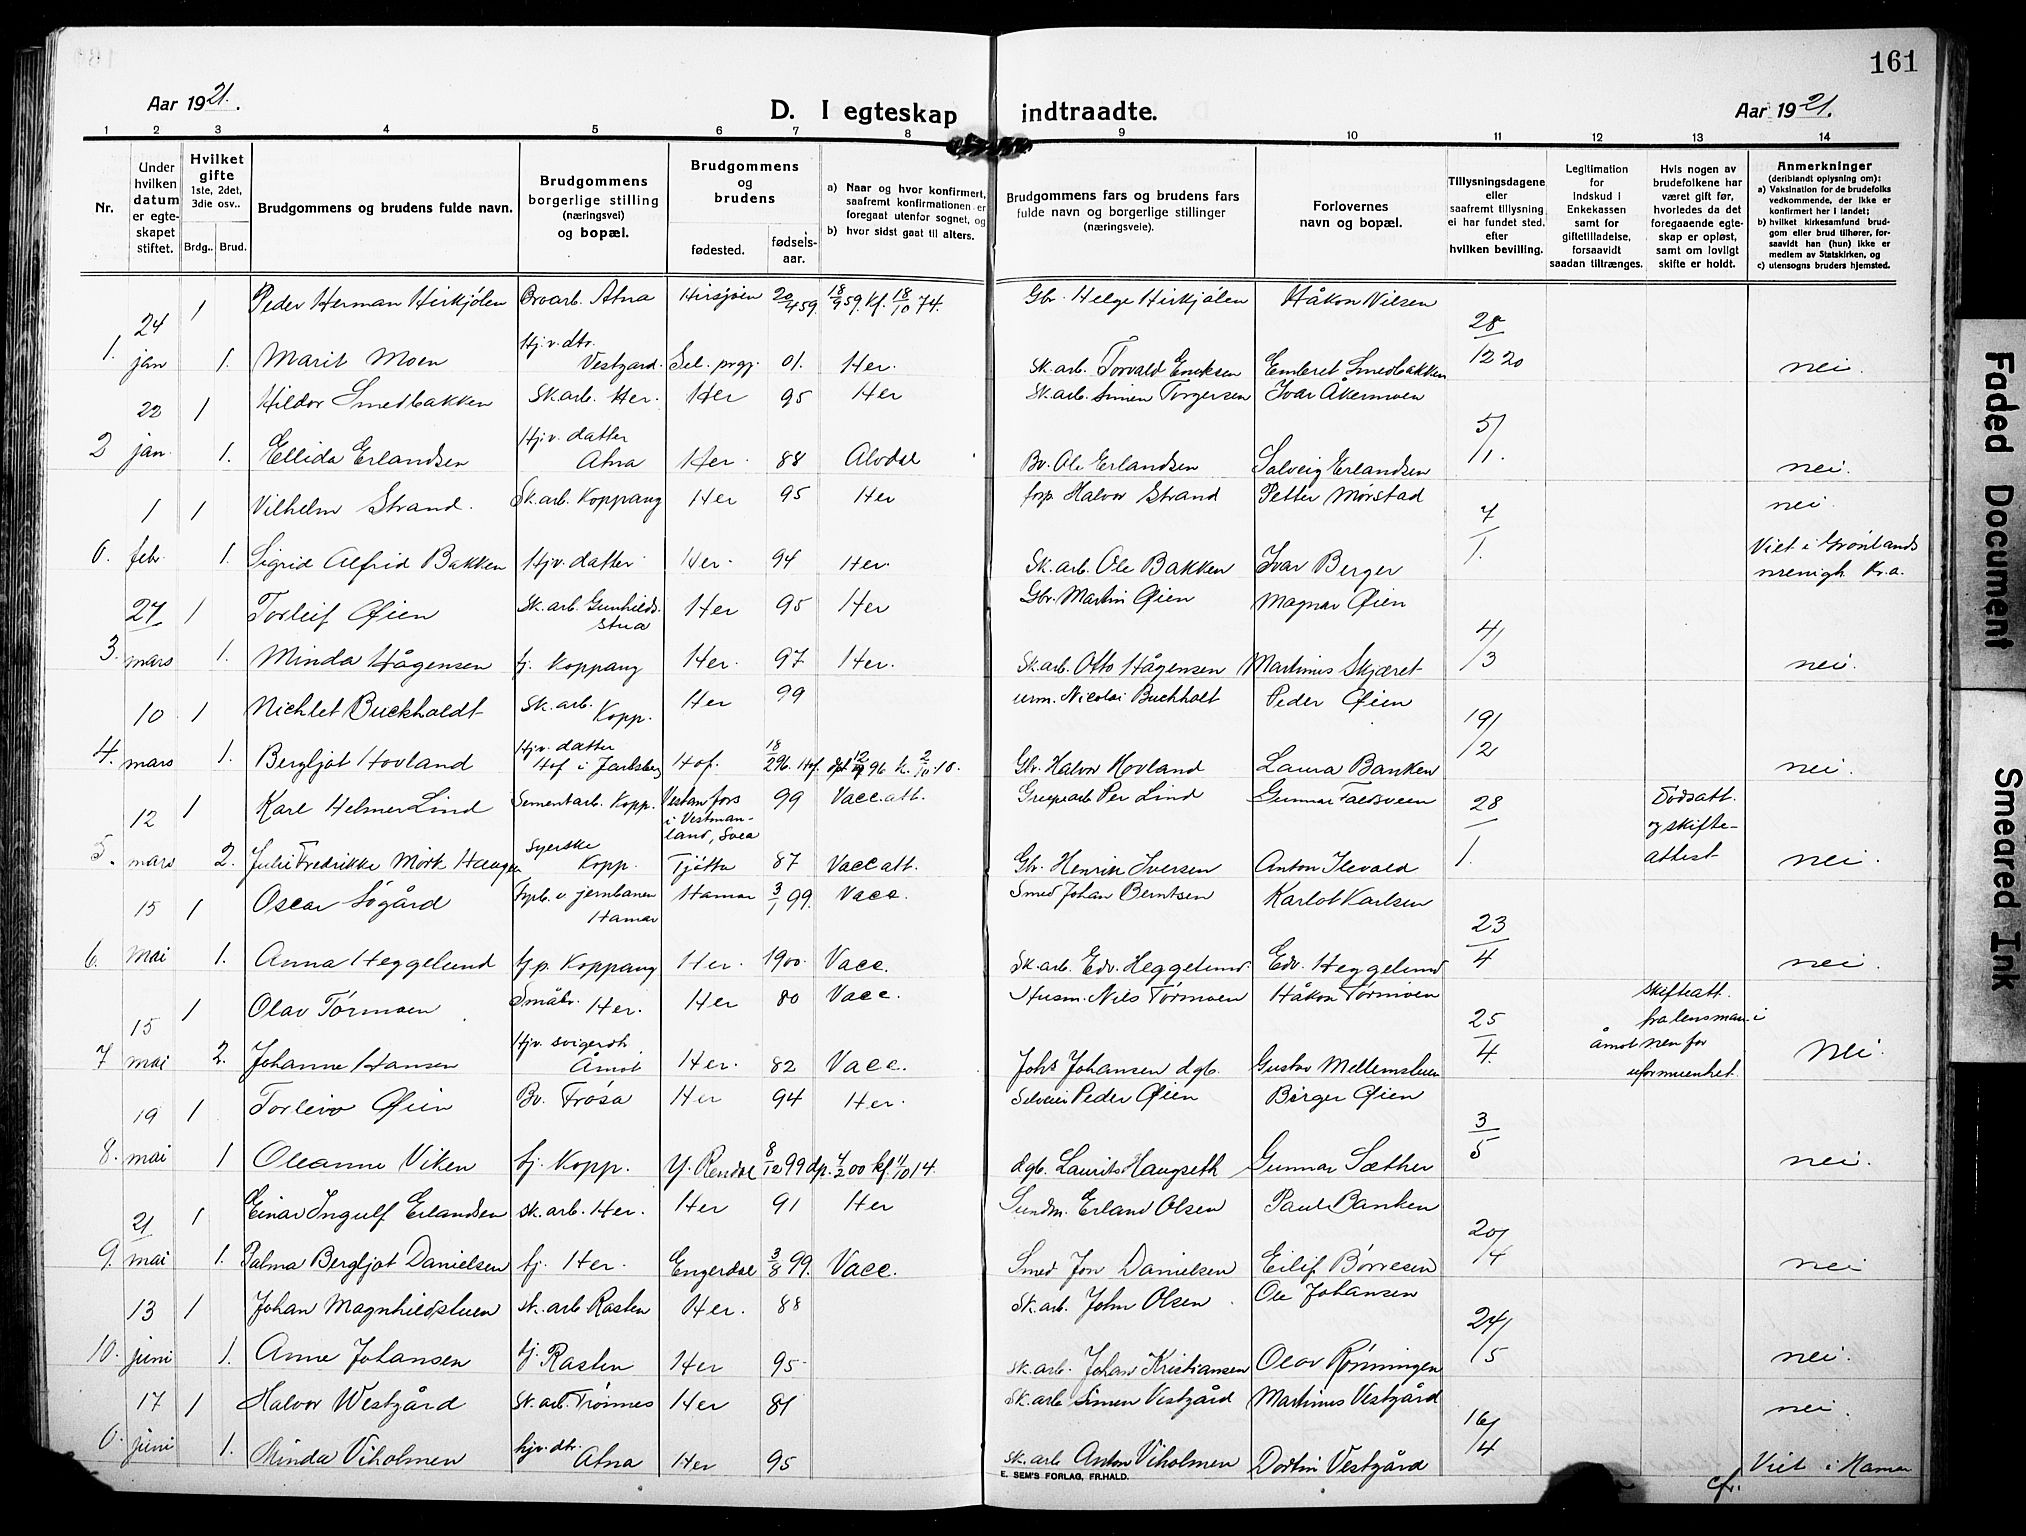 161
Aar 1921.
D. I egteskap indtraadte.
Aar 1921.
1 2 3 4 5 6 7 8 9 10 11 12 13 14
Nr.
Under hvilken datum er egteskapet stiftet.
Hvilket gifte 1ste, 2det, 3die osv..
Brdg.. Brud.
Brudgommens og brudens fulde navn.
Brudgommens borgerlige stilling (næringsvei) og bopæl.
Brudgommens og brudens
fødested. fødsels-aar.
a) Naar og hvor konfirmert, saafremt konfirmationen er foregaat utenfor sognet, og
b) hvor sidst gaat til alters.
Brudgommens fars og brudens fars fulde navn og borgerlige stillinger (næringsveie).
Forlovernes navn og bopæl.
Tillysningsdagene eller saafremt tillysning ei har fundet sted, efter hvilken bevilling.
Legitimation for Indskud i Enkekassen samt for giftetilladelse, forsaavidt saadan tiltrænges.
Hvis nogen av brudefolkene har været gift før, hvorledes da det foregaaende egteskap er opløst, samt om lovligt skifte er holdt.
Anmerkninger (deriblandt oplysning om):
a) Vaksination for de brudefolks vedkommende, der ikke er konfirmert her i landet;
b) hvilket kirkesamfund brudgom eller brud tilhører, forsaavidt han (hun) ikke er medlem av Statskirken, og
c) utensogns bruders hjemsted.
1. 24 jan 1 Peder Herman Hirkjølen Atna Hirsjøen 20/4 59. 18/9 59. kf. 18/10 74. Gbr. Helge Hirkjølen Håkon Nilsen 28/12 20
1. Marit Moen Hj.v. dtr. Vestgard. Sel. prgj. 01. Her. Sk. arb. Torvald Eriksen Embret Smedbakken nei.
2 22 jan. 1 Hildor Smedbakken Sk. arb. Her. Her 95 Her Sk. arb. Simen Torgersen Ivar Åkermoen 5/1.
1. Ellida Erlandsen Hjv. datter Atna Her. 88 Alvdal Bv. Ole Erlandsen Solveig Erlandsen nei.
0. 1 febr 1 Vilhelm Strand. Sk. arb. Koppang Her 95 Her forp. Halvor Strand Petter Mørstad 7/1. nei.
1. Sigrid Alfrid Bakken Hjv. datter Her. 94 Her. Sk. arb. Ole Bakken Ivar Berger Viet i Grønlands menigh. Kr.a.
3. 27 mars 1 Torleif Øien Sk. arb. Gunhilds stua Her 95 Her Gbr. Martin Øien Magnar Øien 4/3
1. Minda Hågensen tj. Koppang Her. 97 Her. Sk. arb. Otto Hågensen Martinus Skjæret nei.
4. 10 mars 1 Nichlet Buckholdt Sk. arb. Kopp. Her 99 urm. Nicolai Buchholt Peder Øien 19/2
1. Bergljot Hovland Hjv. datter Hof i Jarlsberg Hof. 18/2 96. Hof. Gbr. Halvor Hovland Laura Banken nei.
5. 12 mars 1 Karl Helmer Lind Sementarb. Kopp. Vestanfors i Vestmanland, Svea 99 Vacc. att. Per Lind Gunnar Faldsveen 28/1. Dødsatt. og skifteattest
2. Julie Fredrikke Mørk Haugen Syerske Kopp. Tjøtta 87 Vacc att. Gbr. Henrik Iversen Anton Ilevold nei.
6. 15 mai 1 Oscar Søgård Fyrb. v jernbanen Hamar Hamar 3/1 99. Vacc. Smed Johan Berntsen Karlot Karlsen 23/4
1. Anna Heggelund tj. p. Koppang Her. 1900. Vacc. Sk. arb. Edv. Heggelund Edv. Heggelund nei.
7 15 mai 1 Olav Tørmoen Småbr. Her. Her 80 Vacc. Husm. Nils Tørmoen Håkon Tørmoen 25/4. Skifteatt. fra lensman i Åmot nen for uformuenhet.
2. Johanne Hansen Hjv. svigerdtr Åmot Her. 82 Vacc. Johs Johansen dgb. Gustav Mellemsluen nei.
8. 19 mai 1 Torleiv Øien Bv. Frøsa Her 94 Her. Selveier Peder Øien Birger Øien 3/5
1 Oleanne Viken tj. Kopp. Y. Rendal 8/12 99 dp. 4/2 00 kf. 11/10 14. dgb. Laurits Haugseth Gunnar Sæther nei.
9. 21 mai 1 Einar Ingulf Erlandsen sk. arb. Her. Her 91 Her Sundm. Erland Olsen Paul Banken 20/4
1. Palma Bergljot Danielsen tj. Her. Engerdal 3/8 99. Vacc. Smed Jon Danielsen Eilif Børresen nei
10. 13 juni 1 Johan Magnhildsluen sk. arb Rasten Her. 88 Sk. arb. John Olsen Ole Johansen 24/5
1. Anne Johansen tj. Rasten Her 95 sk. arb. Johan Kristiansen Olav Rønningen nei.
0. 17 juni 1 Halvor Westgård Sk. arb. Trønnes Her 81 Sk. arb. Simen Vestgård Martinus Vestgård 16/4 nei.
1. Minda Viholmen hjv. dtr. Atna Her 95 sk. arb Anton Viholmen Dortin Vestgård Viet i Hamar
cfr.
E. SEM'S FORLAG, FR.HALD.
Faded Document
Smeared Ink